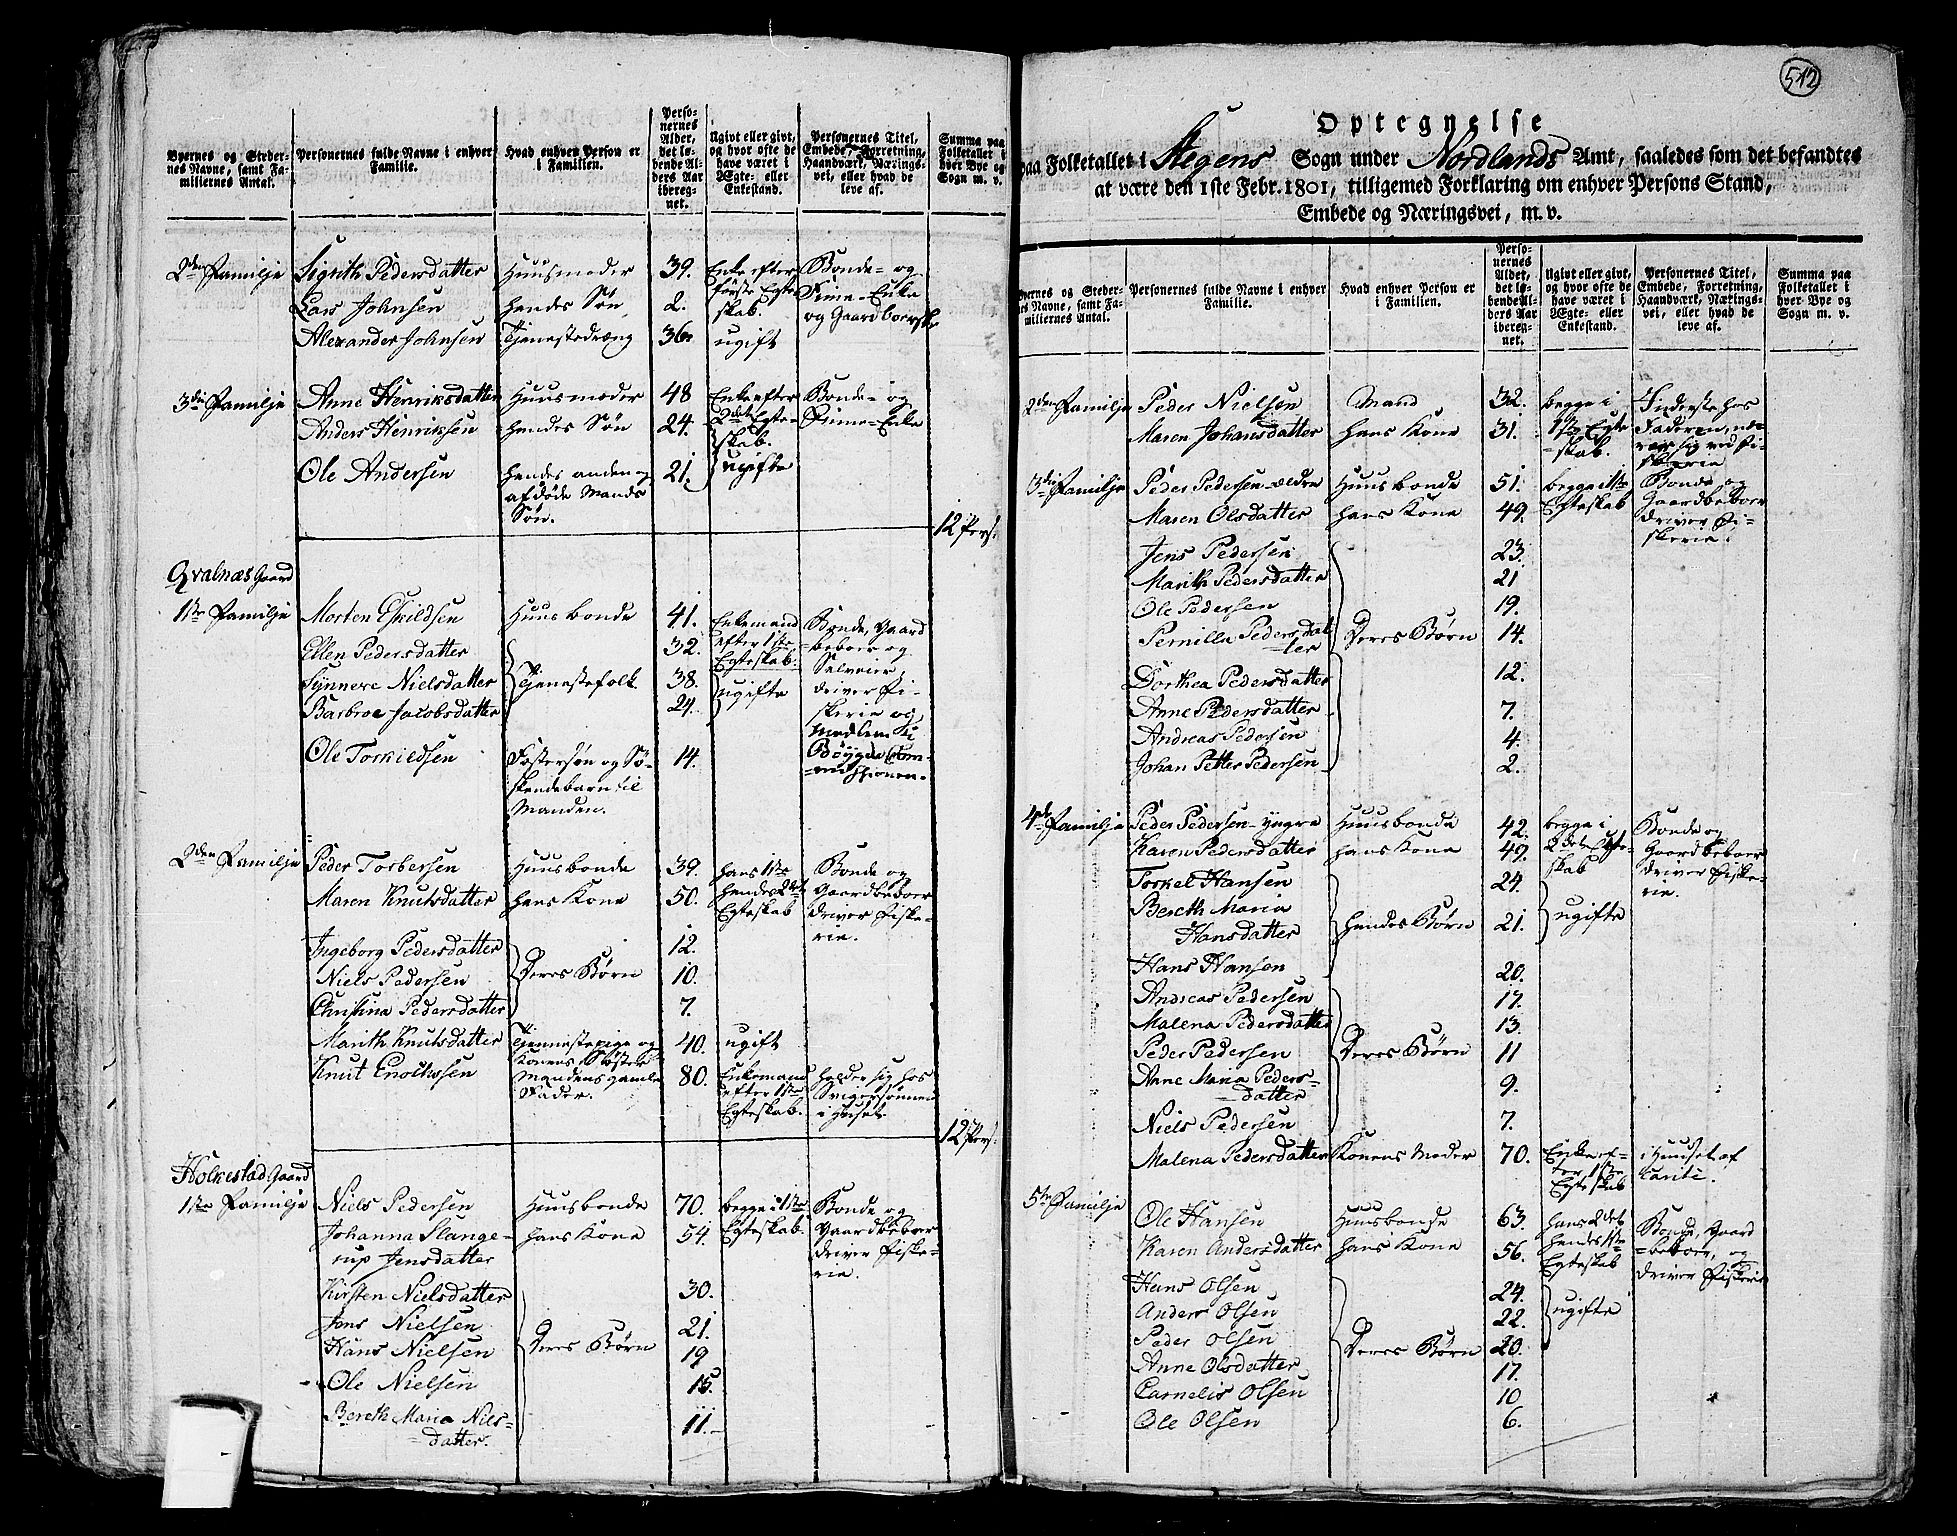 Byernes og Stedernes Navne, samt Familiernes Antal.
Personernes fulde Navne i enhver Familie.
Hvad enhver Person er i Familien.
Personernes Alder, det løbende Alders Aar iberegnet.
Ugivt eller givt, og hvor ofte de have været i Ægte- eller Enkestand.
Personernes Titel, Embede, Forretning, Haandværk, Næringsvei, eller hvad de leve af.
Summa paa Folketallet i hver Bye og Sogn m. v.
2den Familje Sigrith Pedersdatter Huusmoder 39. Enke efter første Egteskab. Bonde- og Finne-Enke og Gaardboerske
Lars Johnsen hendes Søn 2.
Alexander Johnsen Tjenestedræng 36. ugift
3die Familje Anne Henriksdatter Huusmoder 48 Enke efter 2det Egteskab. Bonde- og Finne-Enke
Anders Henriksen hendes Søn 24. ugifte
Ole Andersen hendes anden og afdøde Mands Søn. 21.
12 Pers:
Qvalnæs Gaard
1ste Familje Morten Eskildsen Huusbonde 41. Enkemand efter 1ste Egteskab. Bonde, Gaardbeboer og Selveier, driver Fiskerie og Medlem i Bøygde Commissionen.
Ellen Pedersdatter Tjenestefolk 32. ugifte
Synnere Nielsdatter 38.
Barbroe Jacobsdatter 24.
Ole Torkildsen Fostersøn og Søskendebarn til Manden. 14.
2den Familje Peder Torbersen Huusbonde 39. hans 1ste Bonde og Gaardbeboer driver Fiskerie.
Maren Knutsdatter hans Kone 50. hendes 2det Egteskab
Ingeborg Pedersdatter Deres Børn 12.
Niels Pedersen 10.
Christina Pedersdatter 7.
Marith Knutsdatter Tjennestepige og Konens Søster 40. ugift
Knut Enochssen Mandens gamle Fader. 80. Enkemand efter 1ste Egteskab. holder sig hos Svigersønnen i Huset
12 Pers:
Holkestad Gaard
1ste Familje Niels Pedersen Huusbonde 70. begge i 1ste Egteskab. Bonde og Gaardbeboer driver Fiskerie.
Johanna Slangerup Jensdatter hans Kone 54.
Kirsten Nielsdatter Deres Børn 30.
Jens Nielsen 21.
Hans Nielsen 19
Ole Nielsen 15.
Bereth Maria Nielsdatter. 11.
512
Optegnelse
paa Folketallet i Stegens Sogn under Nordlands Amt, saaledes som det befandtes
at være den 1ste Febr. 1801, tilligemed Forklaring om enhver Persons Stand,
Embede og Næringsvei, m. v.
Byernes og Stedernes Navne, samt Familiernes Antal.
Personernes fulde Navne i enhver Familie.
Hvad enhver Person er i Familien.
Personernes Alder, det løbende Alders Aar iberegnet.
Ugivt eller givt, og hvor ofte de have været i Ægte- eller Enkestand.
Personernes Titel, Embede, Forretning, Haandværk, Næringsvei, eller hvad de leve af.
Summa paa Folketallet i hver Bye og Sogn m. v.
2den Familje Peder Nielsen Mand 32. begge i 1ste Egteskab. Inderste hos Faderen, nærer sig ved Fiskerie
Maren Johansdatter hans Kone 31.
3die Familje Peder Pedersen ældre Huusbonde 51. begge i 1ste Egteskab Bonde og Gaardbeboer driver Fiskerie.
Maren Olsdatter hans Kone 49.
Jens Pedersen Deres Børn 23.
Marith Pedersdatter 21
Ole Pedersen 19.
Pernilla Pedersdatter 14.
Dorthea Pedersdatter 12.
Anne Pedersdatter 7.
Andreas Pedersen 4.
Johan Petter Pedersen 2.
4de Familje Peder Pedersen yngre Huusbonde 42. begge i 2det Egteskab Bonde og Gaardbeboer driver Fiskerie.
Karen Pedersdatter hans Kone 49.
Torkel Hansen hendes Børn 24. ugifte
Bereth Maria Hansdatter 21.
Hans Hansen 20.
Andreas Pedersen Deres Børn 17.
Malena Pedersdatter 13.
Peder Pedersen 11
Anne Maria Pedersdatter 9.
Niels Pedersen 7.
Malena Pedersdatter Konens Moder 70. Enke efter 1ste Egteskab i Huuset af Carite.
5te Familje Ole Hansen Huusbonde 63. hans 2det Bonde, Gaardbeboer, og driver Fiskerie
Karen Andersdatter hans Kone 56. hendes 1ste Egteskab
Hans Olsen Deres Børn 24. ugifte
Anders Olsen 22.
Peder Olsen 20.
Anne Olsdatter 17.
Cornelis Olsen 10
Ole Olsen 6.